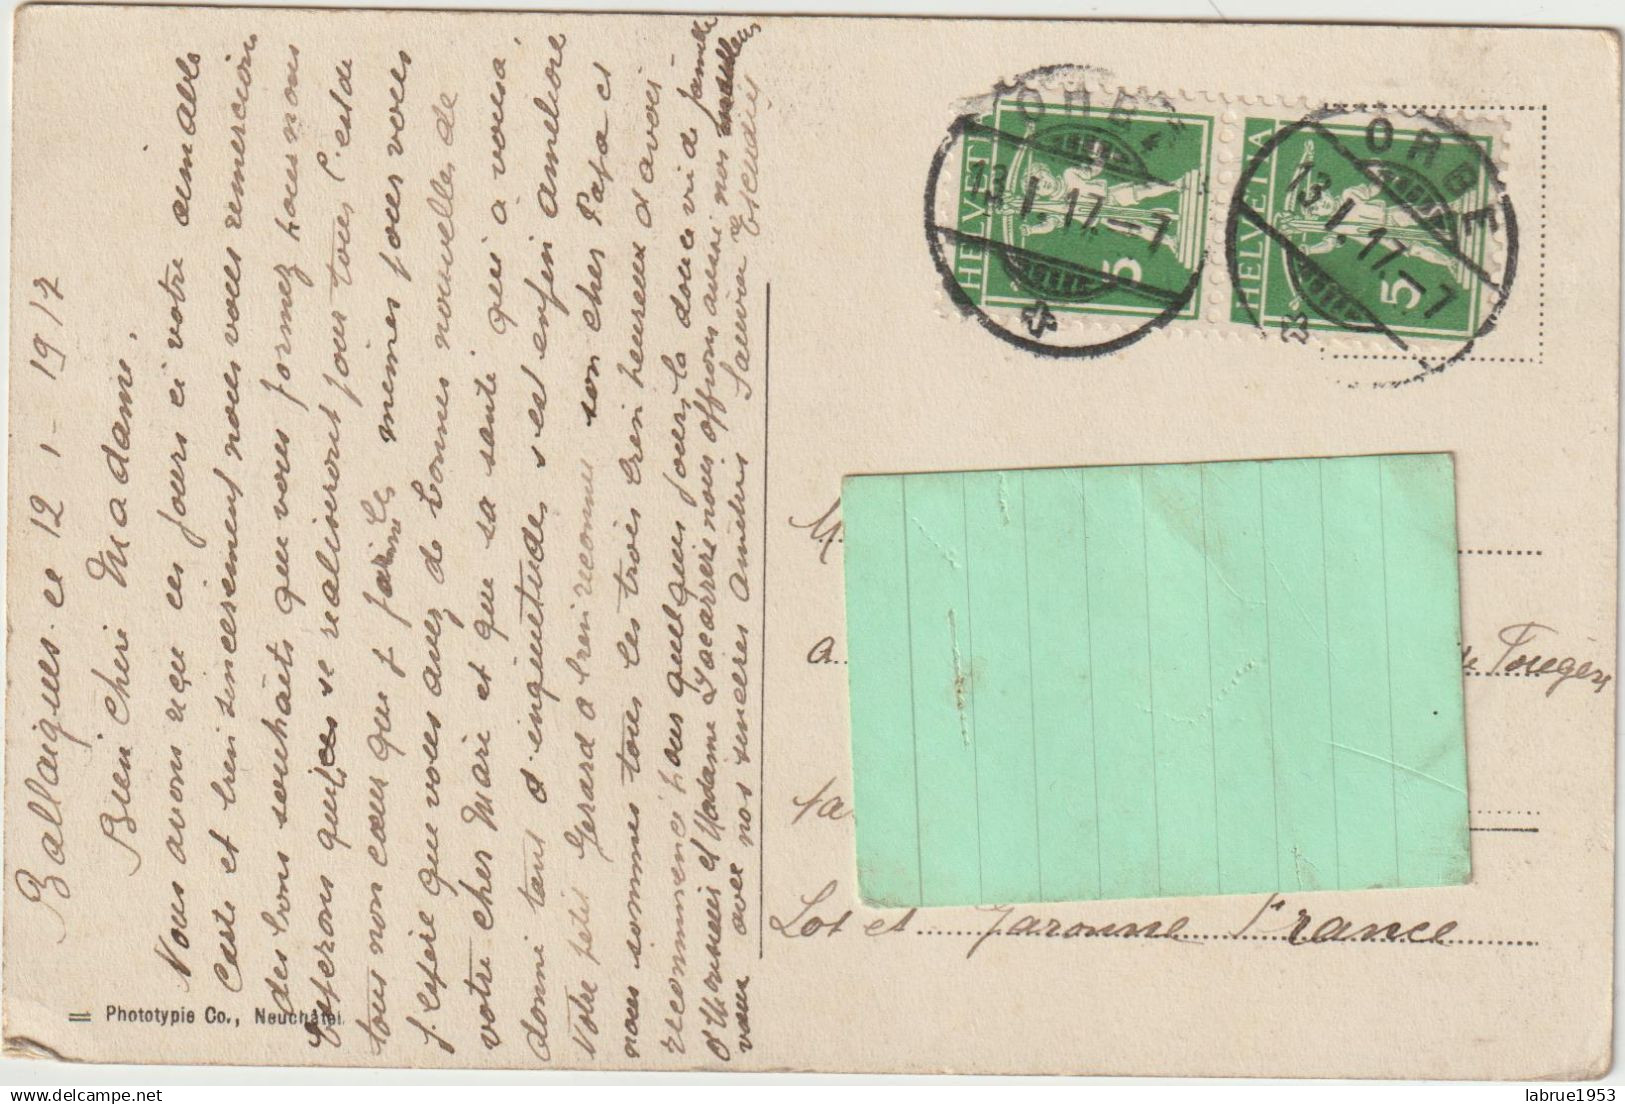 Ballaigues ce 12 1 - 1917
Bien chère Madame.
Vous avons reçu ces jours ci votre aimable
Carte et bien sincerement nous vous remercions
des bons souhaits que vous formez pour nous
Esperons qu'ils se realiseront pour tous l'est de
tous mon cœur que je forme les memes pour vous
J'espere que vous avez de bonnes nouvelles de
votre cher Mari et que sa santé qui a vous a
donné tant d'inquietudes s'est enfin amelioré
Votre petit Gerard a bien reconnu son cher Papa et
nous sommes tous les trois bien heureux d'avoir
recommencé pour quelques jours la douce vie de famille
Monsieur et Madame Lacarrere nous offrons aussi nos meilleurs
vœux avec nos sinceres amities
Phototypie Co., Neuchâtel.
HELVETIA
5
HELVETIA
5
ORBE
13.I.17.-7
ORBE
13.I.17.-7
M.
a
Lot et Garonne France
labrue1953
delcampe.net